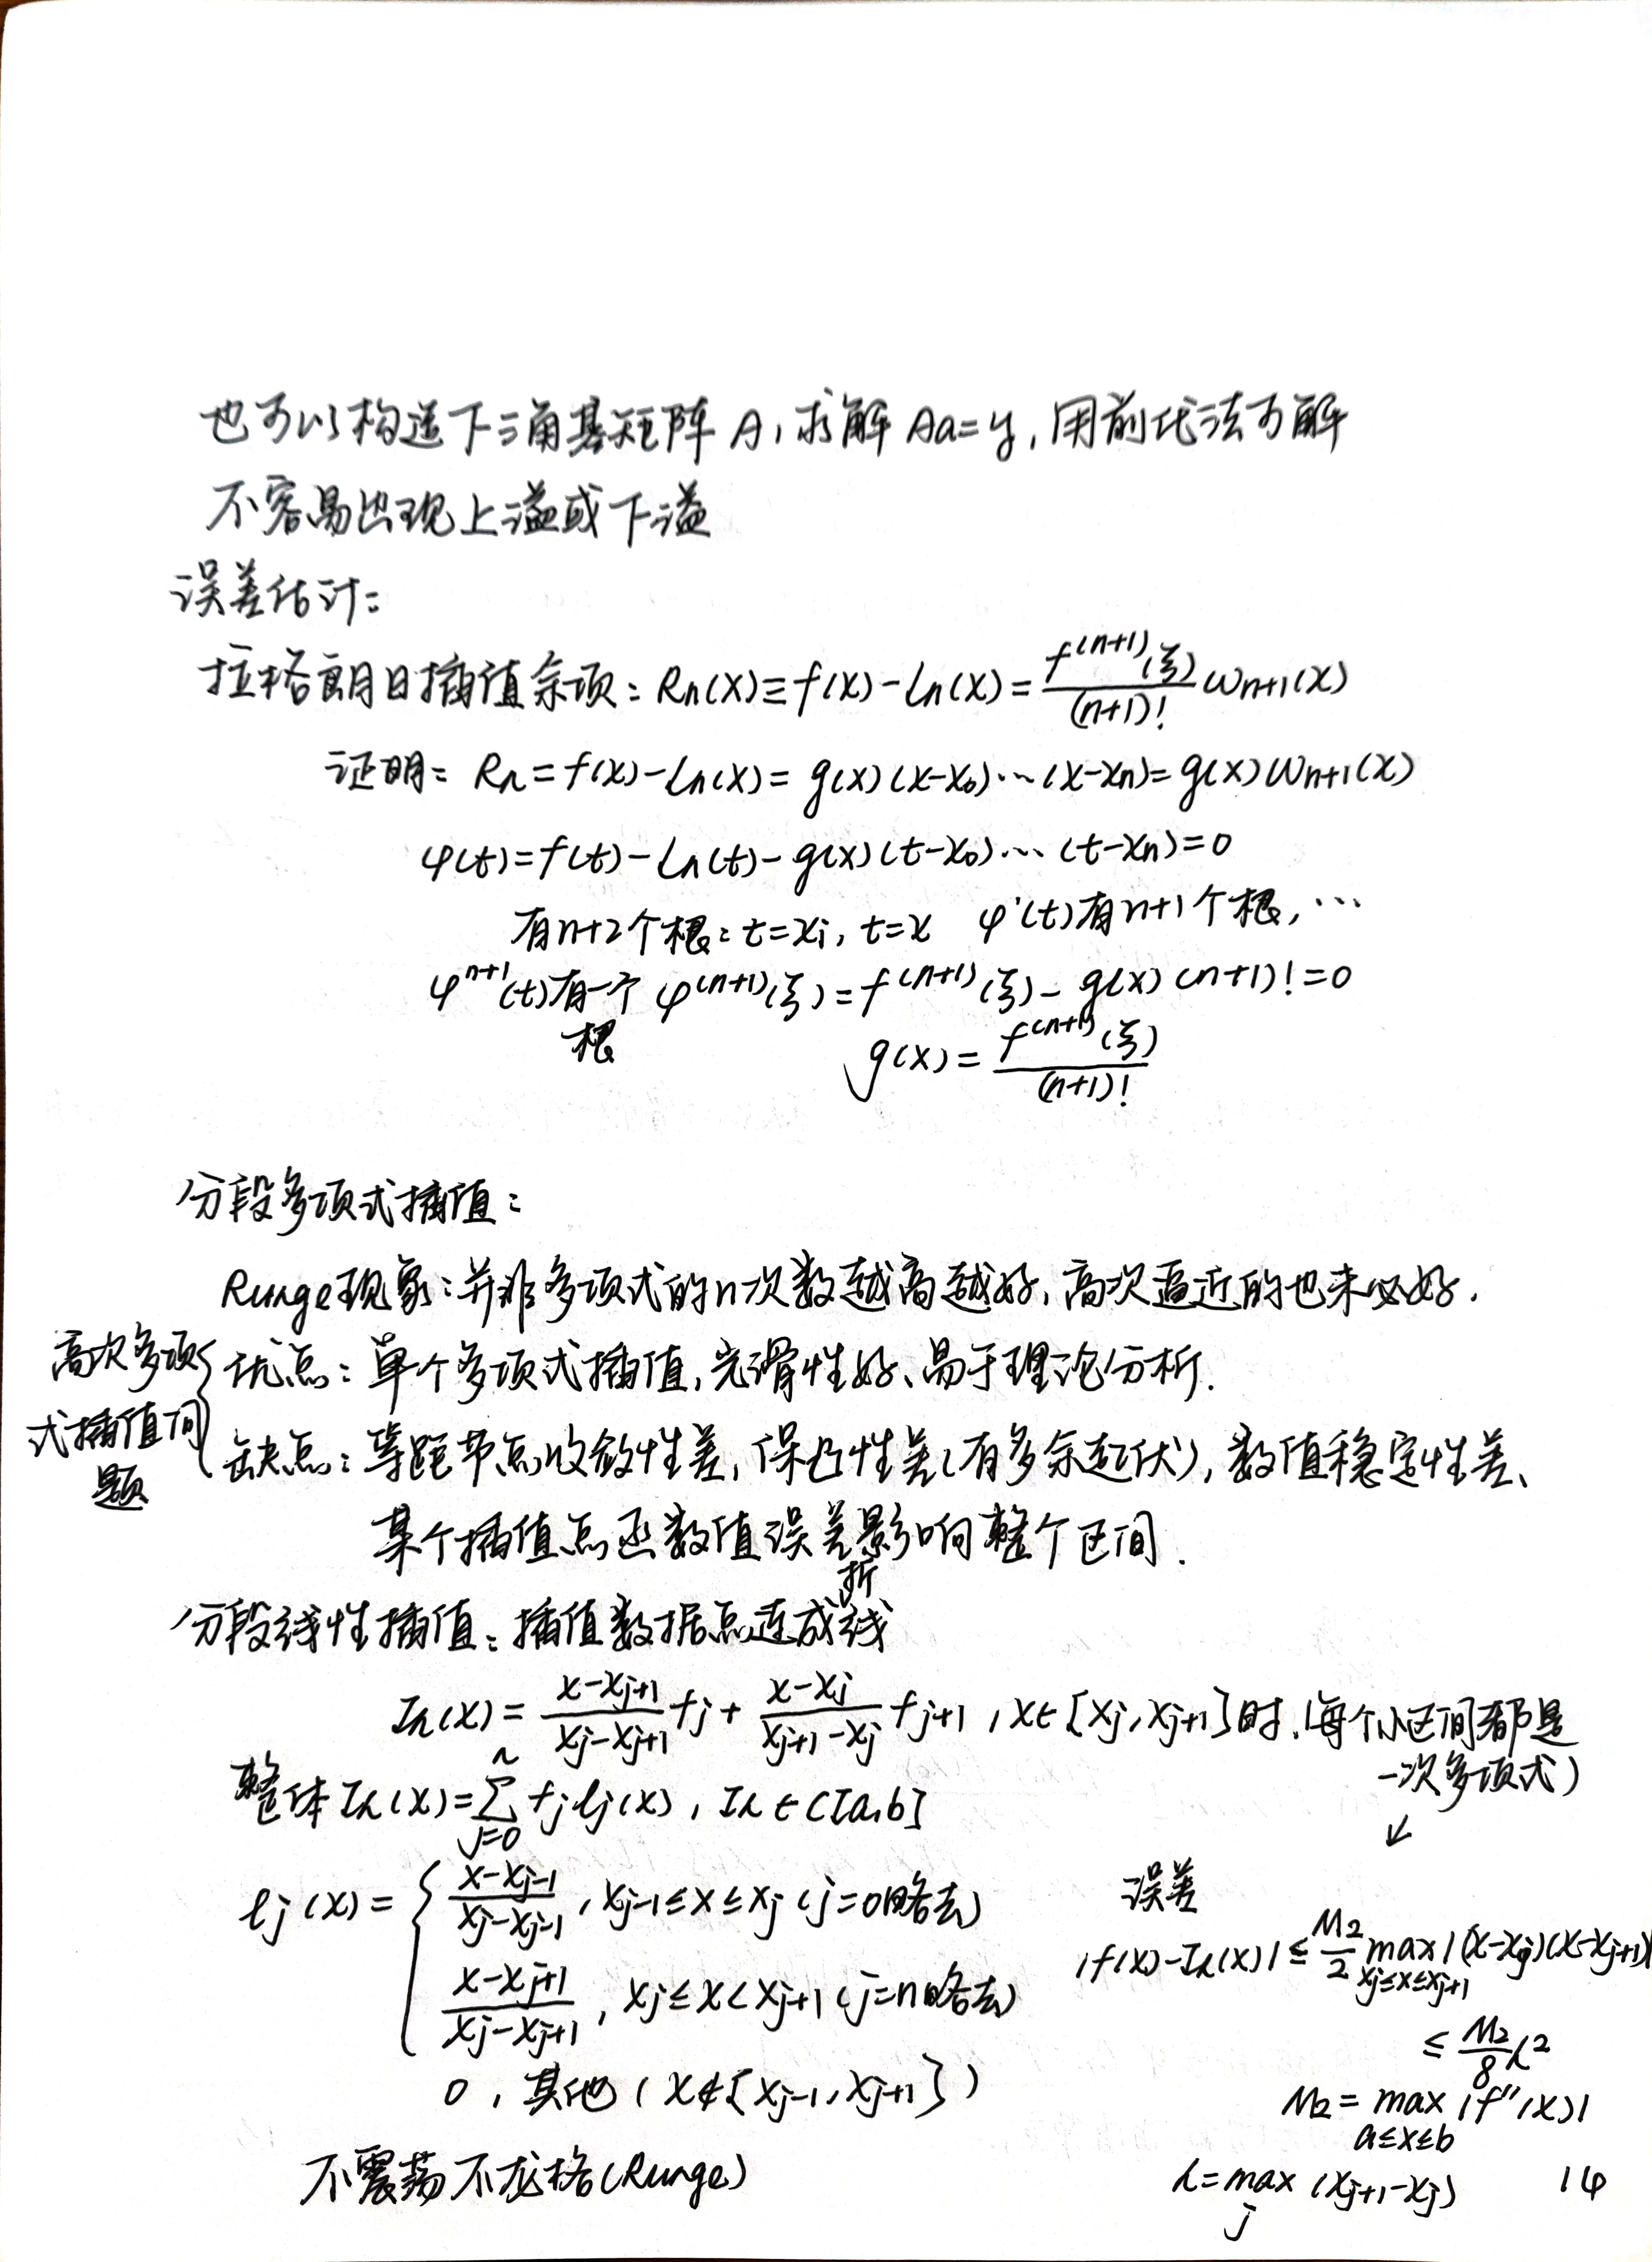 也可以构造下三角基矩阵 A,求解 Aa=y,用前代法可解
不容易出现上溢或下溢
误差估计:
拉格朗日插值余项: Rn(x)≡f(x)-Ln(x)=\frac{f^{(n+1)}(ξ)}{(n+1)!}ω_{n+1}(x)
证明: Rn=f(x)-Ln(x)=g(x)(x-x_0)…(x-x_n)=g(x)ω_{n+1}(x)
φ(t)=f(t)-Ln(t)-g(x)(t-x_0)…(t-x_n)=0
有n+2个根:t=x_i, t=x φ'(t)有n+1个根,…
φ^{n+1}(t)有一个根 φ^{(n+1)}(ξ)=f^{(n+1)}(ξ)-g(x)(n+1)!=0
g(x)=\frac{f^{(n+1)}(ξ)}{(n+1)!}
分段多项式插值:
Runge现象:并非多项式的n次数越高越好,高次逼近的也未必好.
高次多项式插值问题
优点:单个多项式插值,光滑性好、易于理论分析.
缺点:等距节点收敛性差,保凸性差(有多余起伏),数值稳定性差、
某个插值点函数值误差影响整个区间.
分段线性插值:插值数据点连成折线
I_h(x)=\frac{x-x_{j+1}}{x_j-x_{j+1}}f_j+\frac{x-x_j}{x_{j+1}-x_j}f_{j+1},x∈[x_j,x_{j+1}]时.(每个小区间都是
一次多项式)
↙
整体I_h(x)=\sum_{j=0}^{n}f_jl_j(x), I_h∈C[a,b]
l_j(x)={\frac{x-x_{j-1}}{x_j-x_{j-1}},x_{j-1}≤x≤x_j(j=0略去)
\frac{x-x_{j+1}}{x_j-x_{j+1}},x_j≤x<x_{j+1}(j=n略去)
0,其他(x∉[x_{j-1},x_{j+1}])
不震荡不龙格(Runge)
误差
|f(x)-I_h(x)|≤\frac{M_2}{2}\max_{x_j≤x≤x_{j+1}}|(x-x_j)(x-x_{j+1})|
≤\frac{M_2}{8}h^2
M_2=\max_{a≤x≤b}|f''(x)|
h=\max_j(x_{j+1}-x_j)
14